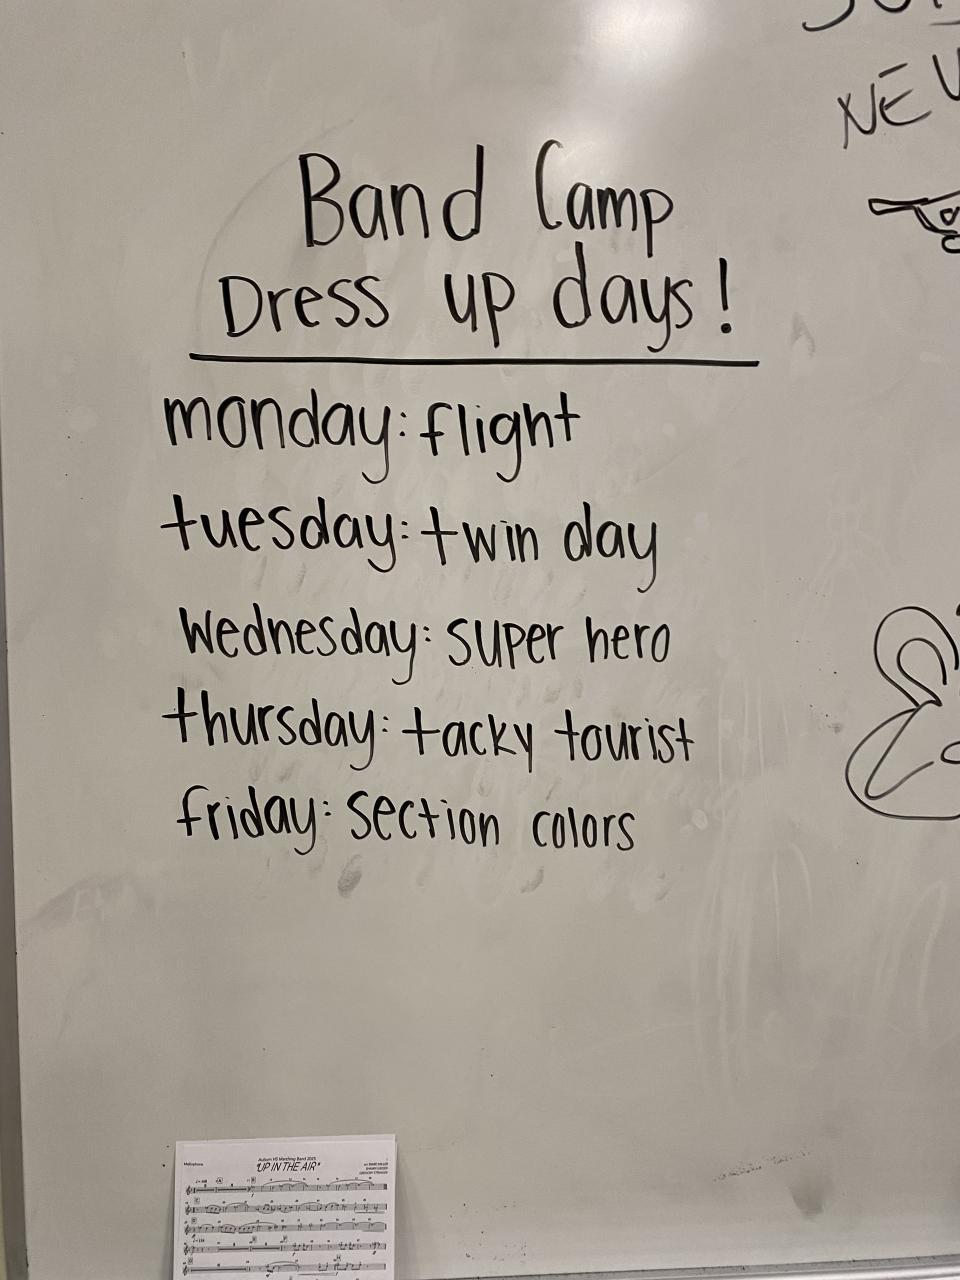 NEV
Band Camp
Dress up days!
monday: flight
tuesday: twin day
Wednesday: super hero
thursday: tacky tourist
friday: section colors
Mellophone
Auburn HS Marching Band 2025
"UP IN THE AIR"